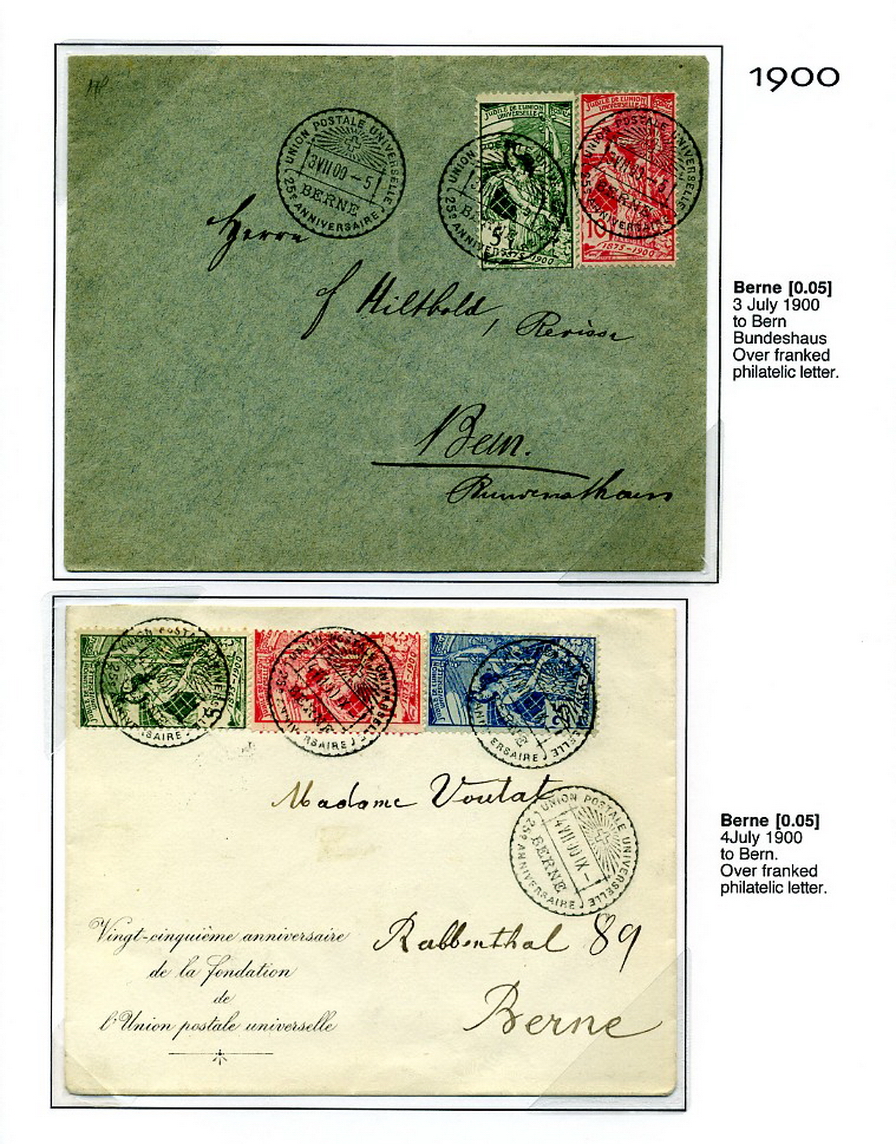 1900
UNION POSTALE UNIVERSELLE
3 VII 00 - 5
BERNE
25e ANNIVERSAIRE
JUBILÉ DE L'UNION
UNIVERSELLE
5
1875-1900
JUBILÉ DE L'UNION
UNIVERSELLE
10
1875-1900
Herrn
Hiltbold,
Bern.
Berne [0.05]
3 July 1900
to Bern
Bundeshaus
Over franked
philatelic letter.
UNION POSTALE UNIVERSELLE
BERNE
25
Madame Voutat
UNION POSTALE UNIVERSELLE
4 VII 00 IX -
BERNE
25e ANNIVERSAIRE
Rabbenthal 89
Berne
Vingt-cinquième anniversaire
de la fondation
de
l'Union postale universelle
Berne [0.05]
4July 1900
to Bern.
Over franked
philatelic letter.